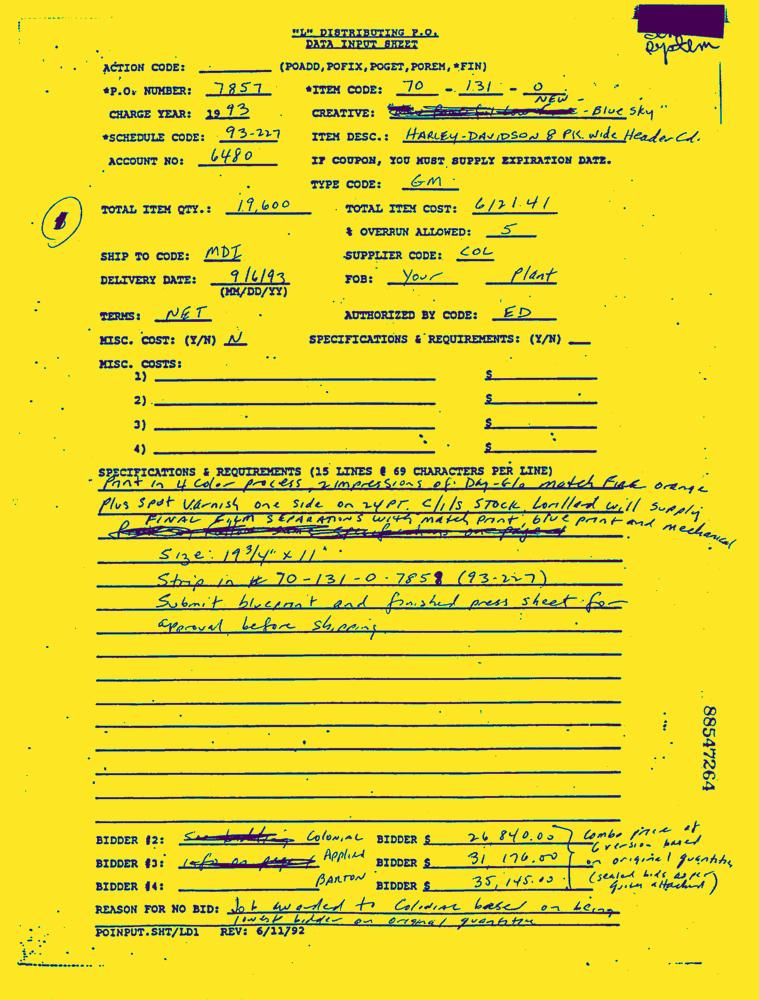 "L" DISTRIBUTING P.O.
DATA INPUT SHEET
system
ACTION CODE: (POADD,POFIX,POGET,POREM,*FIN)
*P.O. NUMBER: 7857 *ITEM CODE: 70 - 131 - 0
NEW
CHARGE YEAR: 1993 CREATIVE: - Blue Sky"
*SCHEDULE CODE: 93-227 ITEM DESC.: HARLEY-DAVIDSON 8 PK. Wide Header Cd.
ACCOUNT NO: 6480 IF COUPON, YOU MUST SUPPLY EXPIRATION DATE.
TYPE CODE: GM
TOTAL ITEM QTY.: 19,600 TOTAL ITEM COST: 6121.41
% OVERRUN ALLOWED: 5
SHIP TO CODE: MDI SUPPLIER CODE: COL
DELIVERY DATE: 9/6/93 FOB: Your Plant
(MM/DD/YY)
TERMS: NET AUTHORIZED BY CODE: ED
MISC. COST: (Y/N) N SPECIFICATIONS & REQUIREMENTS: (Y/N)
MISC. COSTS:
1) $
2) $
3) $
4) $
SPECIFICATIONS & REQUIREMENTS (15 LINES @ 69 CHARACTERS PER LINE)
Print in 4 color process, 2 impressions of Day-Glo match Fire orange
Plus Spot Varnish one side on 24 PT. C/1/S STOCK. Lorillard will supply
FINAL FILM SEPARATIONS with match print, blue print and mechanical
Size: 19 3/4" x 11"
Strip in # 70-131-0-7858 (93-227)
Submit blueprint and finished press sheet for
approval before shipping
88547264
BIDDER #2: Colonial BIDDER $ 26,840.00 Combo price of
6 version based
BIDDER #3: Applied BIDDER $ 31,176.00 on original quantity
BIDDER #4: BARTON BIDDER $ 35,145.00 (sealed bids as per
attached)
REASON FOR NO BID: Job awarded to Colonial based on being
lowest bidder on original quantities
POINPUT.SHT/LD1 REV: 6/11/92